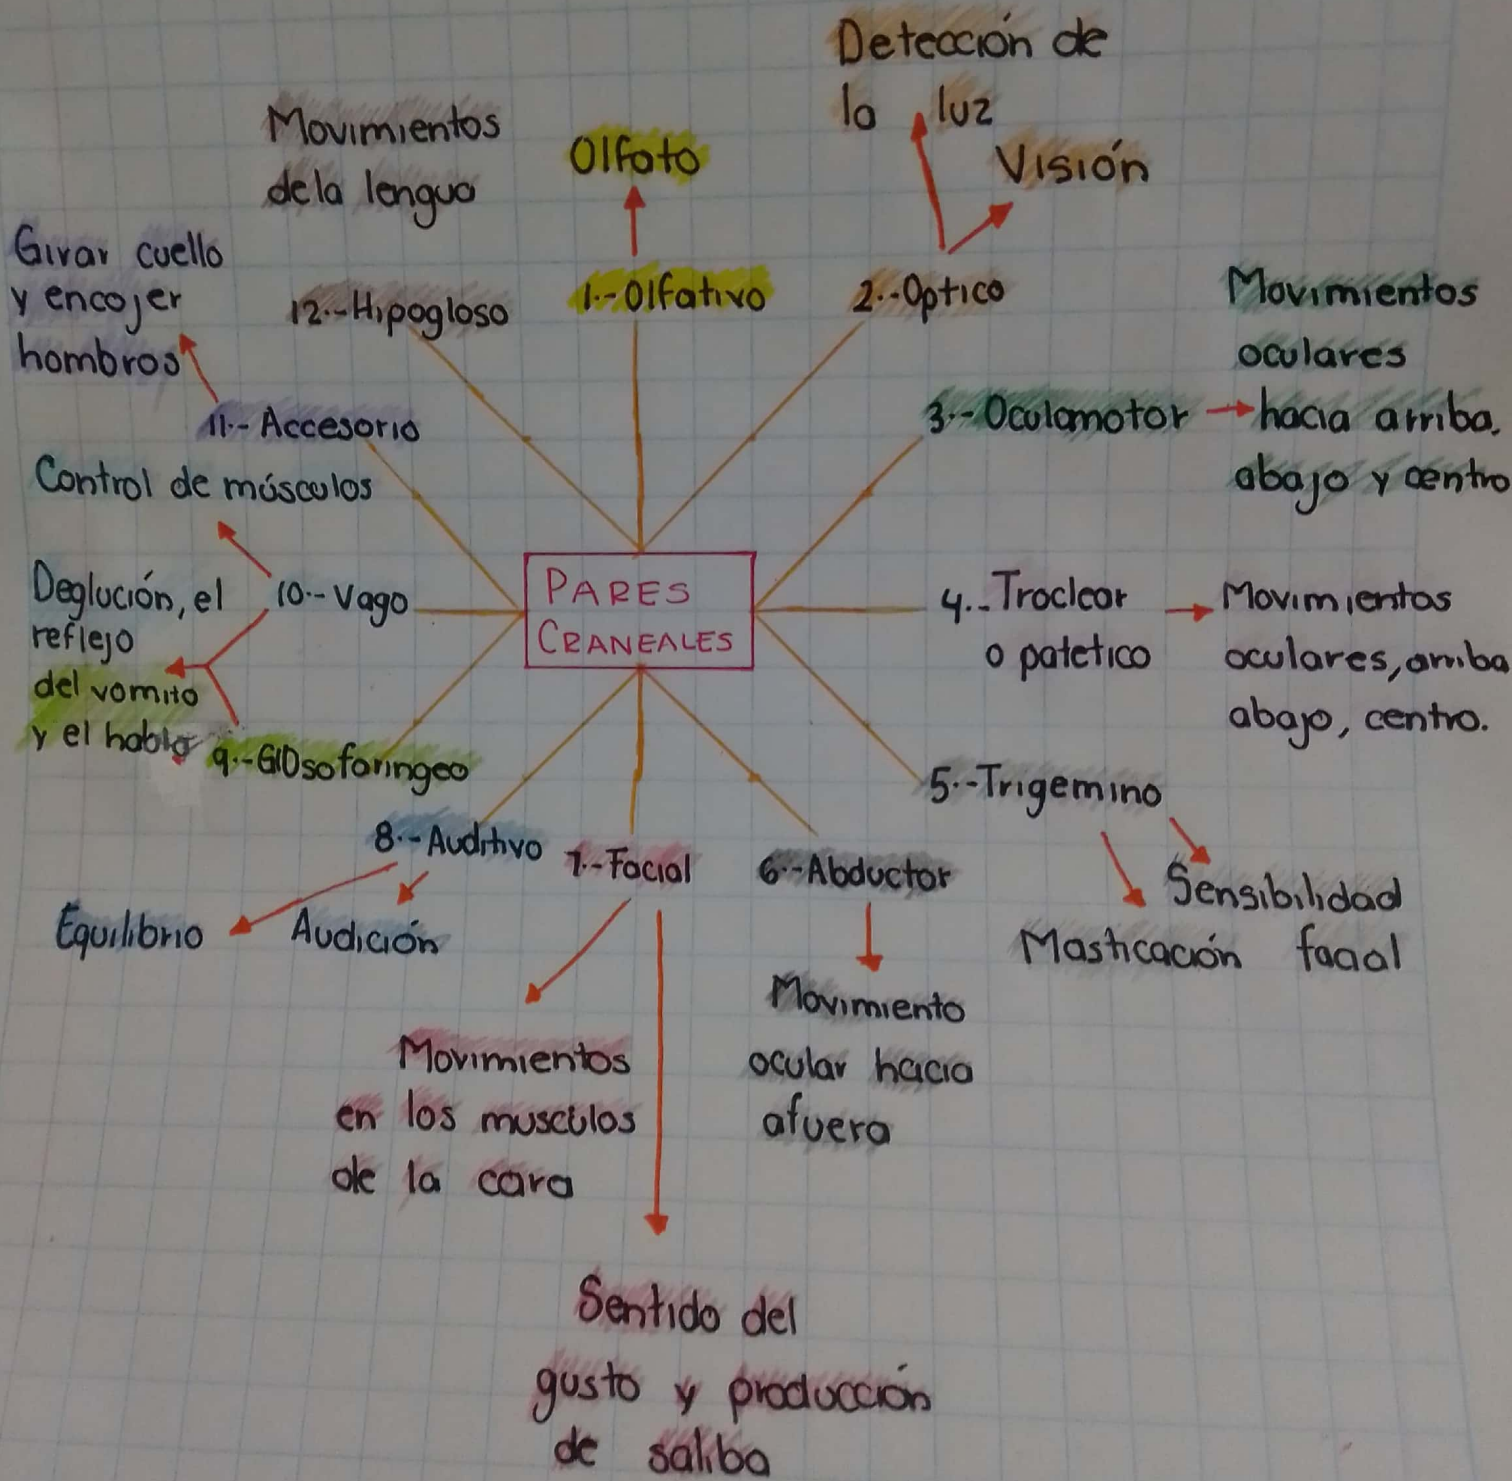 PARES
CRANEALES
1.-Olfativo
Olfato
2.-Optico
Detección de
la luz
Visión
3.-Oculomotor
Movimientos
oculares
hacia arriba,
abajo y centro
4.-Troclear
o patetico
Movimientos
oculares, arriba
abajo, centro.
5.-Trigemino
Masticación
Sensibilidad
facial
6.-Abductor
Movimiento
ocular hacia
afuera
7.-Facial
Movimientos
en los musculos
de la cara
Sentido del
gusto y producción
de saliba
8.-Auditivo
Equilibrio
Audición
9.-GlOsofaringeo
10.-Vago
Deglución, el
reflejo
del vomito
y el habla
Control de músculos
11.-Accesorio
Girar cuello
y encojer
hombros
12.-Hipogloso
Movimientos
de la lengua